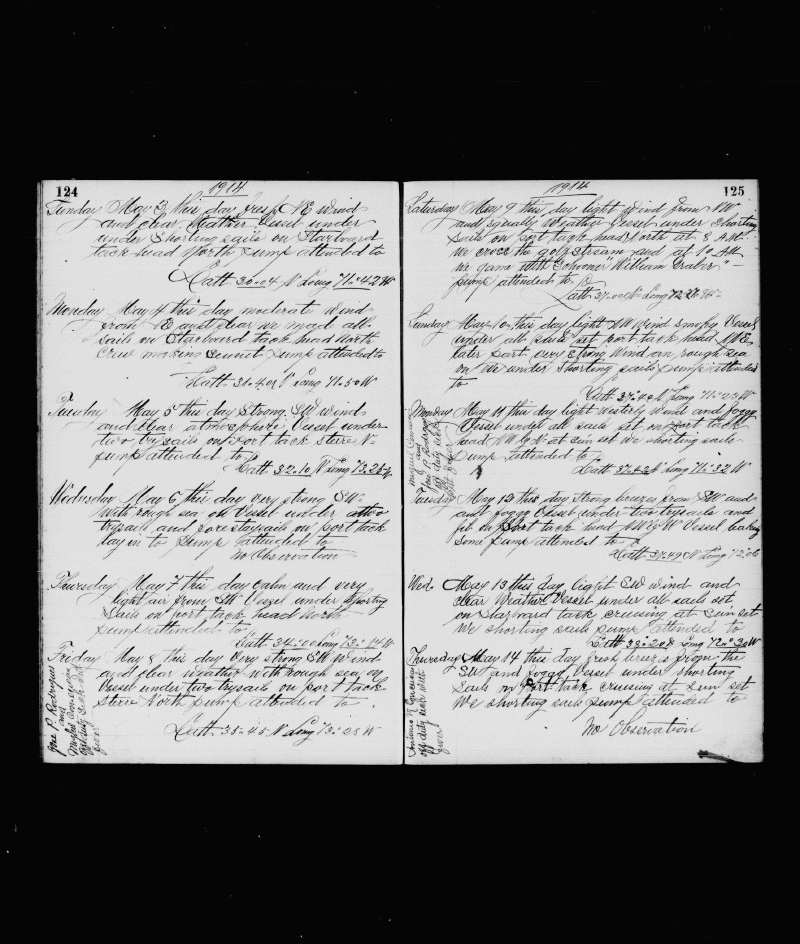 124
1914
Sunday May 3 this day fresh NE wind
and clear weather Vessel under
under Shorting sails on Starboard
tack head North pump attended to
Latt 30-04 N Long 71-42 W
Monday May 4 this day moderate wind
from NE and clear we made all
sails on Starboard tack head North
Crew making pump attended to
Latt 31-40 N Long 71-50 W
Tuesday May 5 this day strong SW wind
and clear atmosphere Vessel under
two trysails on Port tack stere N-
pump attended to
Latt 32-10 N Long 73-25
Wednesday May 6 this day very strong SW-
with rough sea on Vessel under two
trysails and fore staysail on port tack
lay in to pump attended to
No Observation
Thursday May 7 this day calm and very
light air from SW Vessel under Shorting
sails on port tack head North
pump attended to
Latt 34-10 Long 73-14 W
Friday May 8 this day very strong SW Wind
and clear weather with rough sea on
Vessel under two trysails on port tack
stere North pump attended to
Latt 35-45 N Long 73-28 W
Jose P. Rodrigues
and
off duty sick
125
1914
Saturday May 9 this day light Wind from NW
and squally Weather Vessel under Shorting
sails on port tack head North at 8 A.M.
we cross the golf Stream and at 10 AM
we game with Schooner "William Graber"-
pump attended to
Latt 37-00 N Long 72-26 W-
Sunday May 10 this day light NW Wind smoky Vessel
under all sails set port tack head NNE-
later part very strong Wind an rough sea
on We under Shorting sails pump attended
to
Latt 37-09 N Long 71-23 W
Monday May 11 this day light westerly Wind and foggy
Vessel under all sails set on port tack
head NW by N at sun set we shorting sails
pump attended to
Latt 37-42 N Long 71-32 W
and
Jose P. Rodrigues
off duty sick
Tuesday May 12 this day strong breezes from SW and
and foggy Vessel under two trysails and
jib on Port tack head NW by W Vessel leaking
some pump attended to
Latt 37-49 N Long 72-06
Wed May 13 this day light SW wind and
clear Weather Vessel under all sails set
on Starboard tack cruising at sun set
We shorting sails pump attended to
Latt 38-20 N Long 72-30 W
Thursday May 14 this day fresh breezes from the
SW and foggy Vessel under shorting
sails on Port tack cruising at sun set
We shorting sails pump attended to
No Observation
Antonio
off duty sick